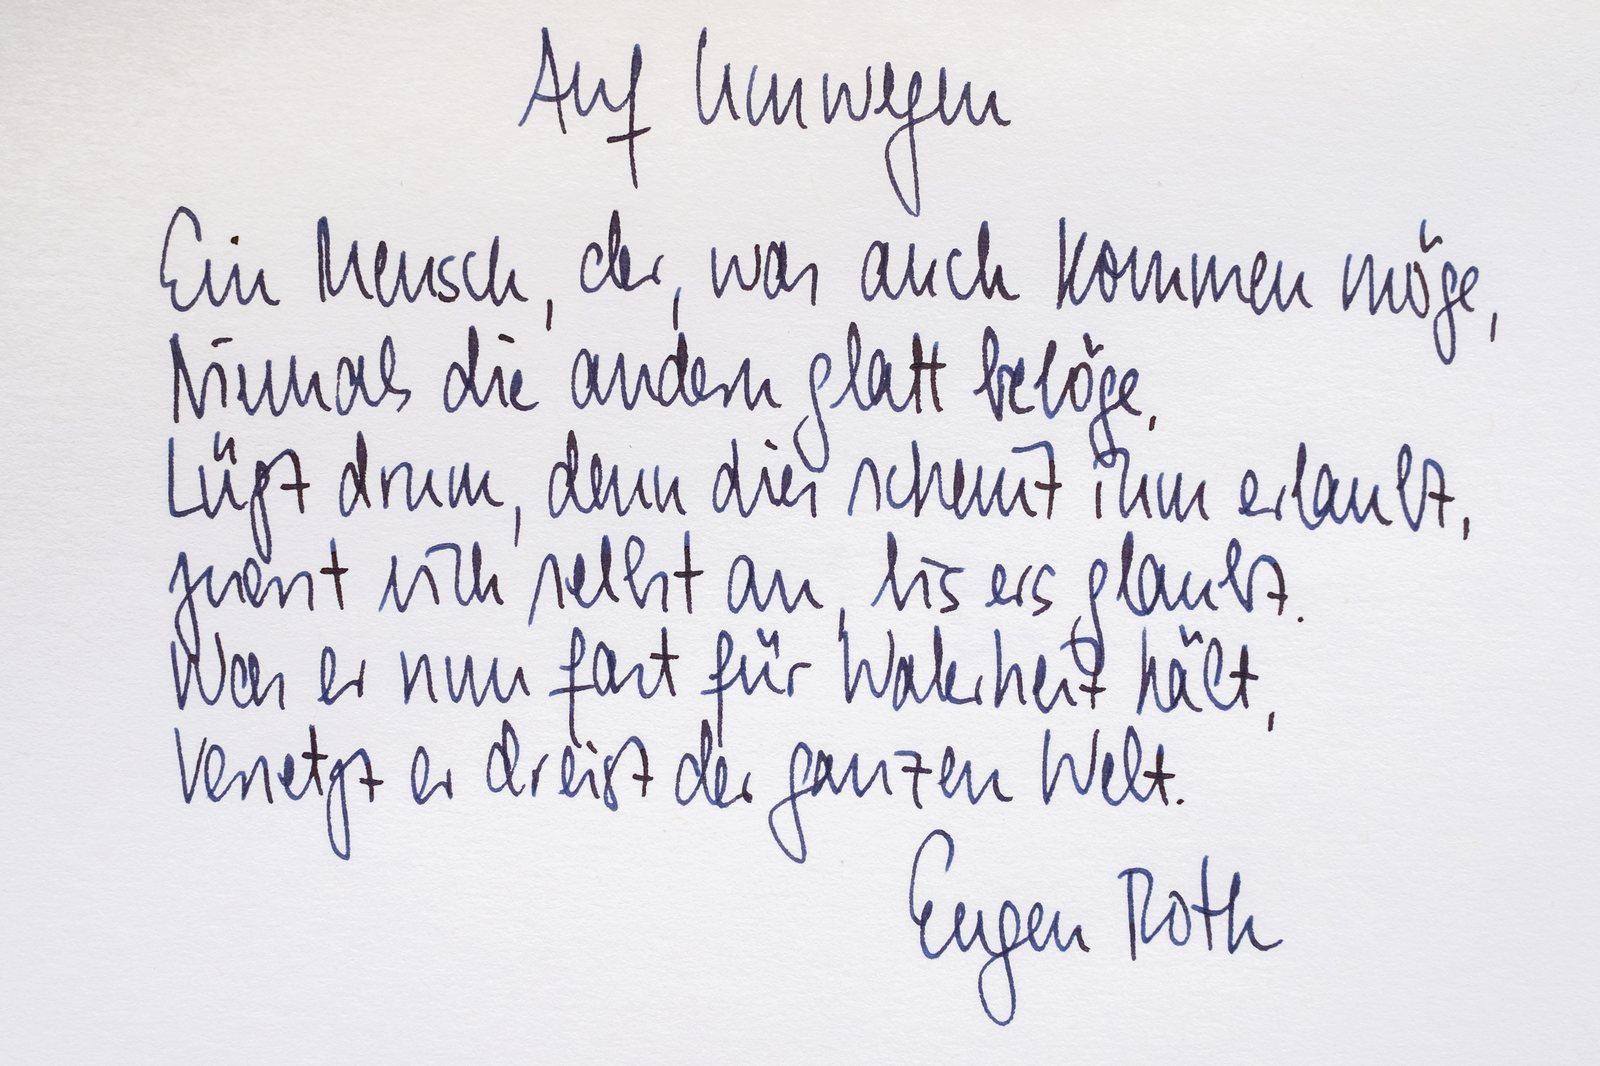 Auf Umwegen
Ein Mensch, der, was auch kommen möge,
Niemals die andern glatt belöge,
Lügt drum, denn dies scheint ihm erlaubt,
zuerst sich selbst an, bis ers glaubt.
Was er nun fast für Wahrheit hält,
Versetzt er dreist der ganzen Welt.
Eugen Roth